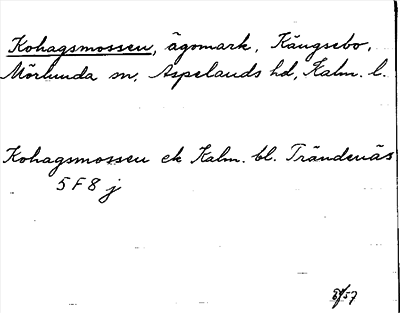 Kohagsmossen, ägomark, Kängsebo,
Mörlunda sn, Aspelands hd, Kalm. l.
Kohagsmossen ek Kalm. bl. Trändenäs
5 F 8 j